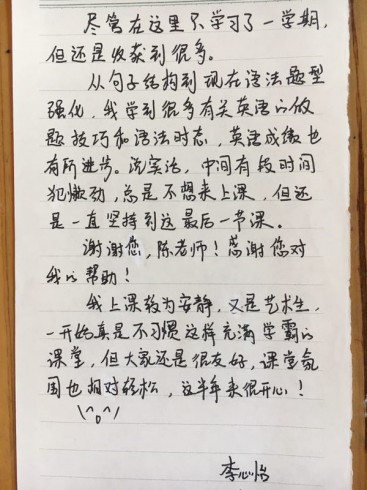 尽管在这里只学习了一学期,
但还是收获到很多。
从句子结构到现在语法题型
强化,我学到很多有关英语的做
题技巧和语法时态,英语成绩也
有所进步。说实话,中间有段时间
犯懒劲,总是不想来上课,但还
是一直坚持到这最后一节课。
谢谢您,陈老师!感谢您对
我的帮助!
我上课较为安静,又是艺术生,
一开始真是不习惯这样充满学霸的
课堂,但大家还是很友好,课堂氛
围也相对轻松,这半年来很开心!
\^o^/
李心怡